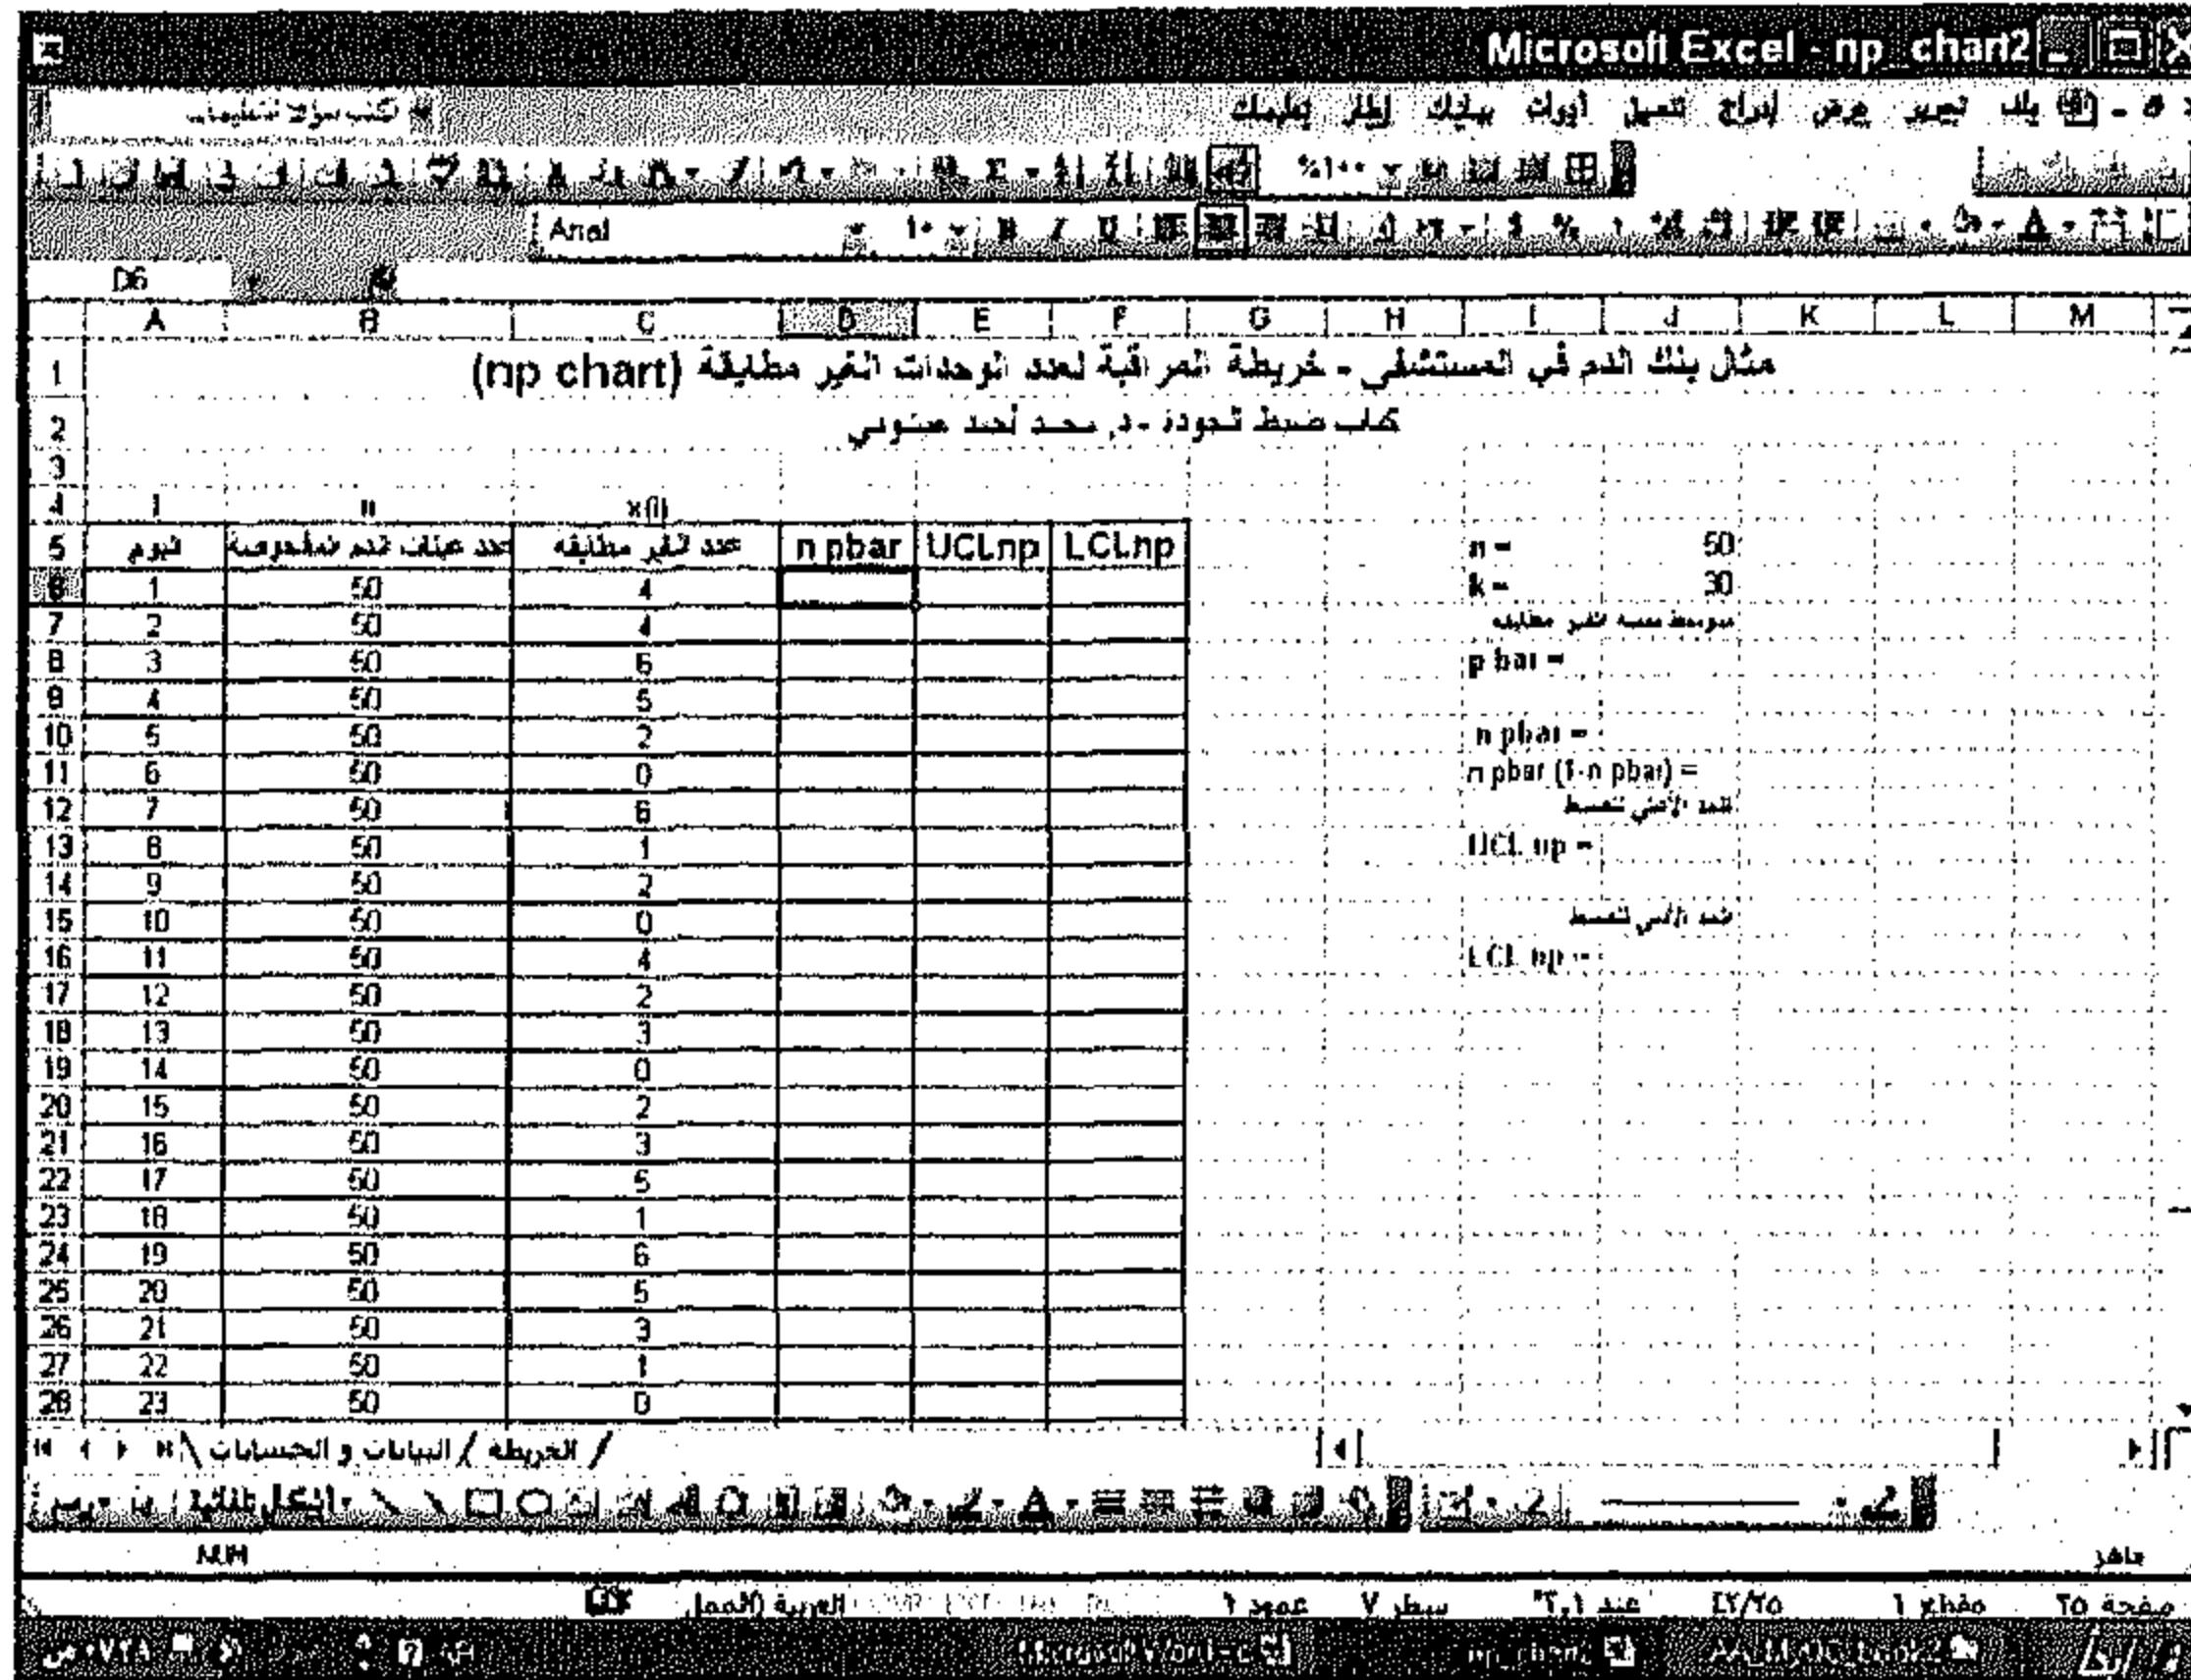 Microsoft Excel - np_chart2
ملف تحرير عرض إدراج تنسيق أدوات بيانات إطار تعليمات
%١٠٠
Arial ١٠
D6
A B C D E F G H I J K L M
1 مثال بنك الدم في المستشفى - خريطة المراقبة لعدد الوحدات الغير مطابقة (np chart)
2 كتاب ضبط الجودة - د. محمد أحمد عيشوني
3
4 i n x(i)
5 اليوم عدد عينات الدم المفحوصة عدد الغير مطابقه n pbar UCLnp LCLnp n = 50
6 1 50 4 k = 30
7 2 50 4 متوسط نسبة الغير مطابقه
8 3 50 6 p bar =
9 4 50 5
10 5 50 2 n pbar =
11 6 50 0 n pbar (1-n pbar) =
12 7 50 6 الحد الأعلى للضبط
13 8 50 1 UCL np =
14 9 50 2
15 10 50 0 الحد الأدنى للضبط
16 11 50 4 LCL np =
17 12 50 2
18 13 50 3
19 14 50 0
20 15 50 2
21 16 50 3
22 17 50 5
23 18 50 1
24 19 50 6
25 20 50 5
26 21 50 3
27 22 50 1
28 23 50 0
البيانات و الحسابات / الخريطة
رسم أشكال تلقائية
NUM جاهز
صفحة ٢٥ مقطع ١ ٤٢/٢٥ عند ٣,١" سطر ٧ عمود ١ العربية
ابدأ